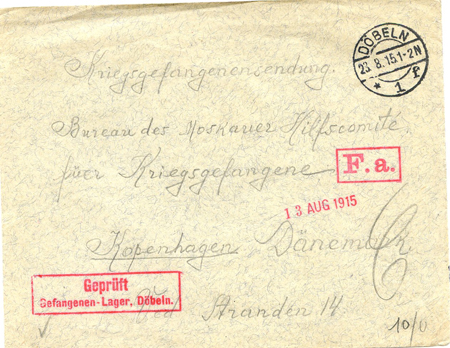 DÖBELN
23.8.15.1-2N
* 1 f
Kriegsgefangenensendung.
Bureau des Moskauer Hilfscomité
füer Kriegsgefangene
F. a.
13 AUG 1915
Kopenhagen Dänemark
Geprüft
Gefangenen-Lager, Döbeln.
Ved Stranden 14
10/0